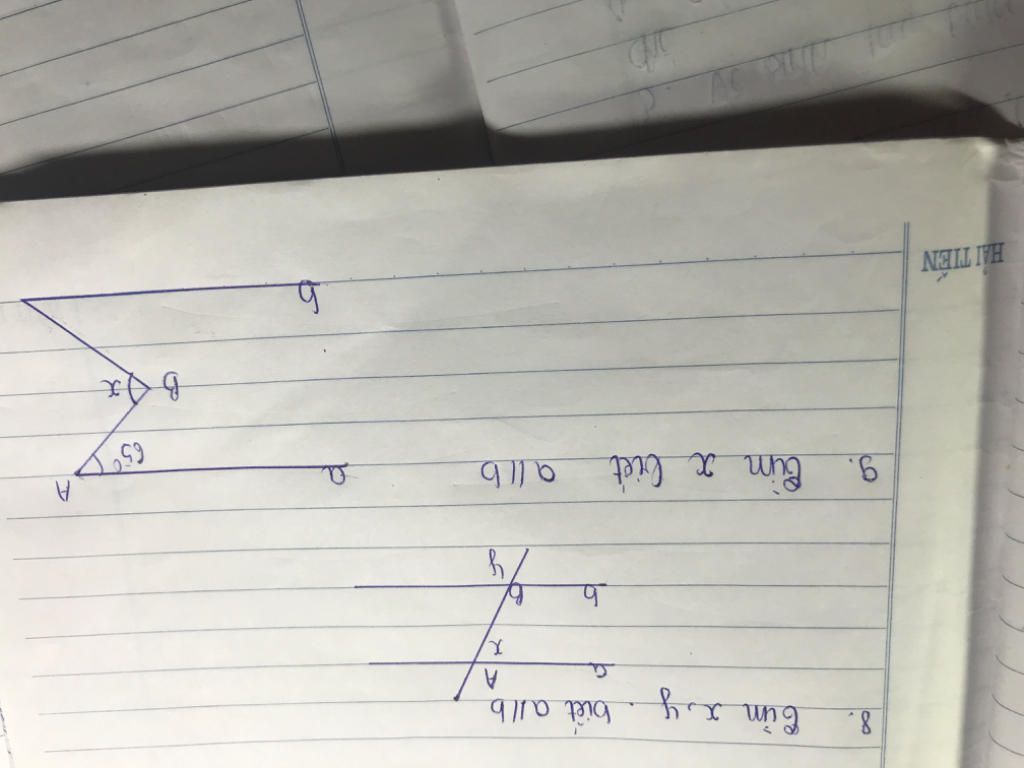 HẢI TIẾN
8. Tìm x, y. biết a // b
A
a
x
B
b
y
9. Tìm x biết a // b
a
A
65°
B
x
b